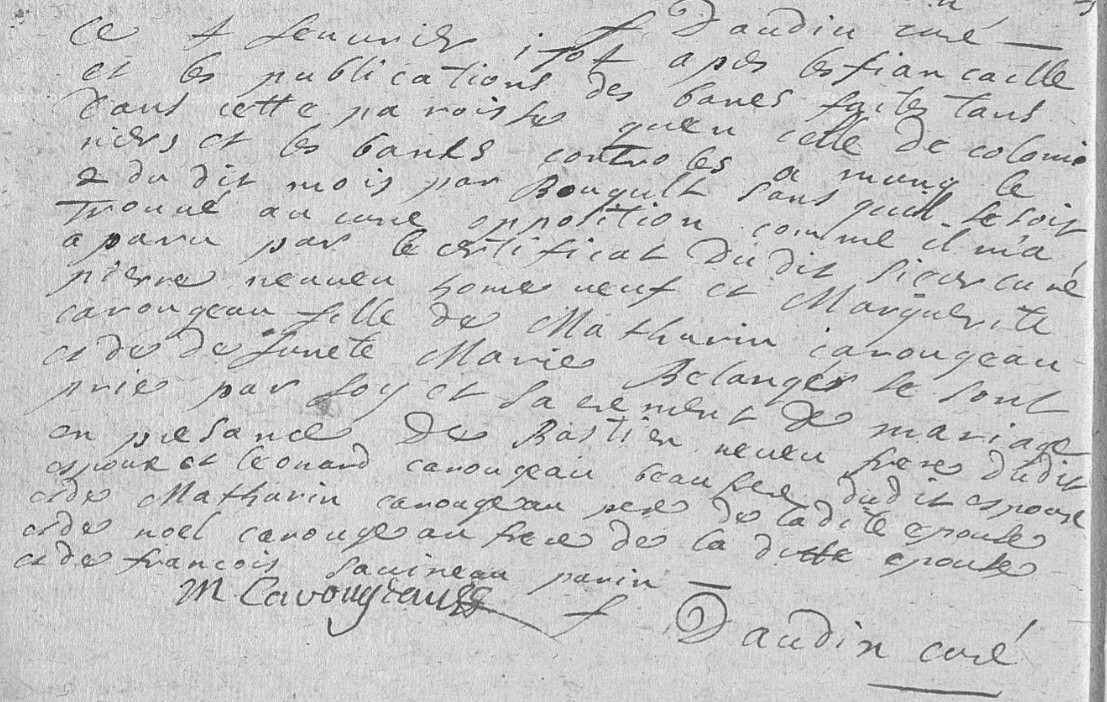 f Daudin curé
Ce 4 feuurier 1704 apres les fiancaille
et les publications des bancs faites tans
dans cette paroisse quen celle de colomie
niers et les bancs controles a mung le
2 du dit mois par Bougult sans quil se soit
trouué aucune opposition comme il m'a
aparu par le certificat dudit sieur curé
pierre neuueu home ueuf et Marguerite
carougeau fille de Mathurin carougeau
et de defunete Marie Belanger se sont
pries par foy et sacrement de mariage
en presance de Bastien neueu frere dudit
espoux et leonard carougeau beau frere dudit espoux
et de Mathurin carougeau pere de ladite epouse
et de noel carougeau frere de la ditte epouse
et de francois sauineau parin
M Carougeau f Daudin curé